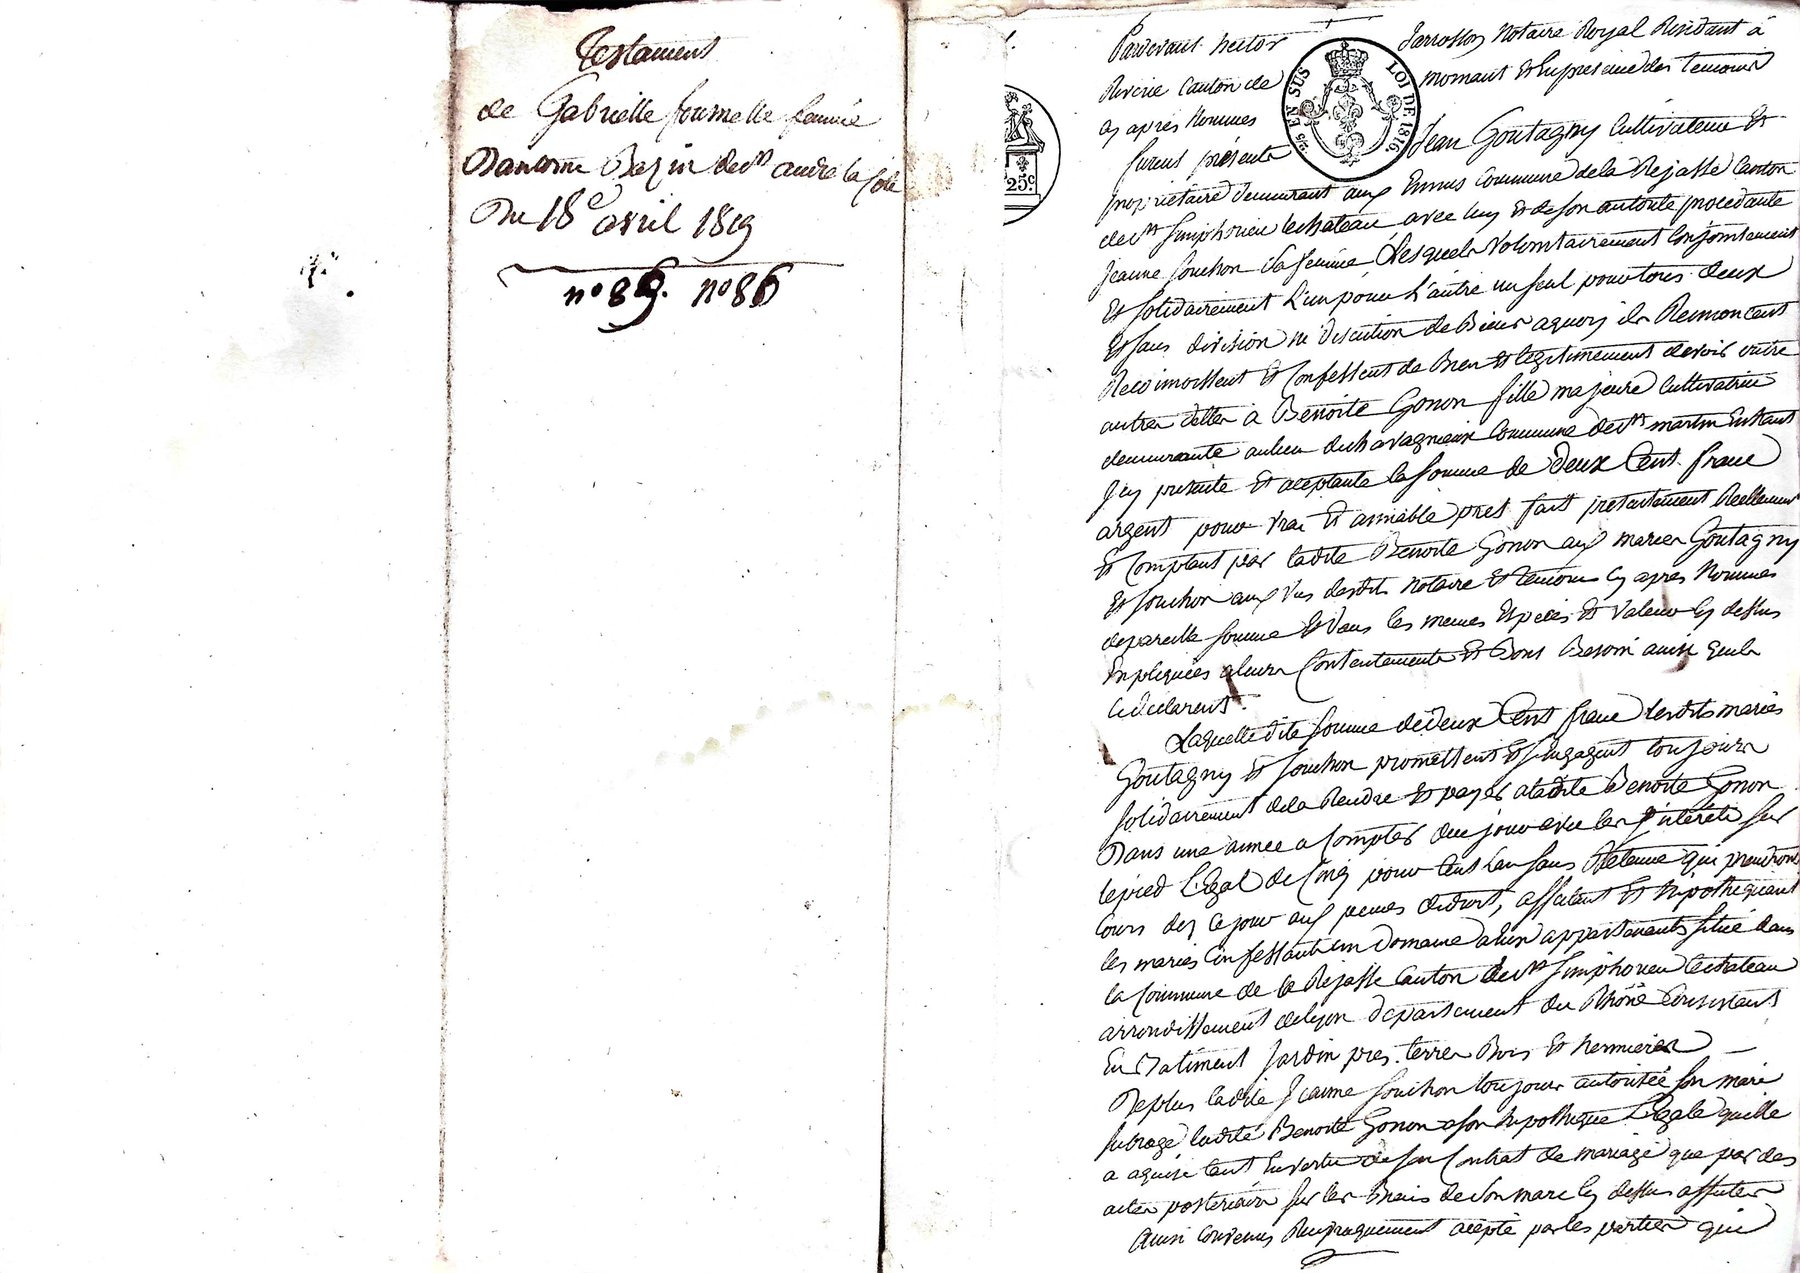 Testament
de Gabrielle fournelle femme
Dantoine Bazin de st andré la Cote
Du 18e avril 1819
n° 86. n° 86
25 c
25 EN SUS
LOI DE 1816.
Pardevant hector Jarrosson Notaire Royal Résidant à
Riverie Canton de mornant Et En présence des temoins
cy après Nommes
furent présents Jean Goutagny Cultivateur Et
propriétaire demeurant aux Ennus Commune de la Rejasse Canton
de st Simphorien le chateau avec luy Et de son autorité procedante
Jeanne Souchon sa femme Lesquels Volontairement Conjointement
Et solidairement L'un pour L'autre un seul pour tous deux
Et sans division ne discution de Biens a quoy ils Renoncent
Reconnoissent Et Confessent de Bien Et légitimement devoir outre
autres dettes à Benoite Gonon fille majeure Cultivatrice
demeurante au lieu de chavagnieux Commune de st martin En haut
Icy présente Et aceptante la somme de deux Cent franc
argent pour vrai Et amiable prét fait présentement Réellement
Et Comptant par ladite Benoite Gonon aux mariés Goutagny
Et Souchon aux vus desdits Notaire Et temoins cy après Nommes
de pareille somme Et dans les memes Espèces Et Valeur cy dessus
Expliquées a leurs Contentements Et Bons Besoin ainsi quils
le déclarent.
Laquelle dite somme de deux Cent franc lesdits mariés
Goutagny Et Souchon promettent Et s'Engagent toujours
solidairement de la Rendre Et payer a ladite Benoite Gonon
Dans une année a Compter de ce jour avec les Interéts sur
le pied Légal de Cinq pour Cent L'an sans Retenue qui prendront
Cours dez ce jour aux peines de droit, affectant Et hipothequant
les mariés Confessants un Domaine a Eux appartenants situé dans
la Commune de la Rejasse Canton de st Simphorien le chateau
arrondissement de lyon département du Rhône Consistant
En Batiment Jardin pres. terres Bois Et hermieres
De plus ladite Jeanne Souchon toujours autorisée son mari
subroge ladite Benoite Gonon a son hipothèque Légale quelle
a aquise tant En vertu de son Contrat de mariage que par des
actes postérieurs sur les Biens de son mari cy dessus affectés
Ainsi Convenus Réciproquement acepté par les parties qui